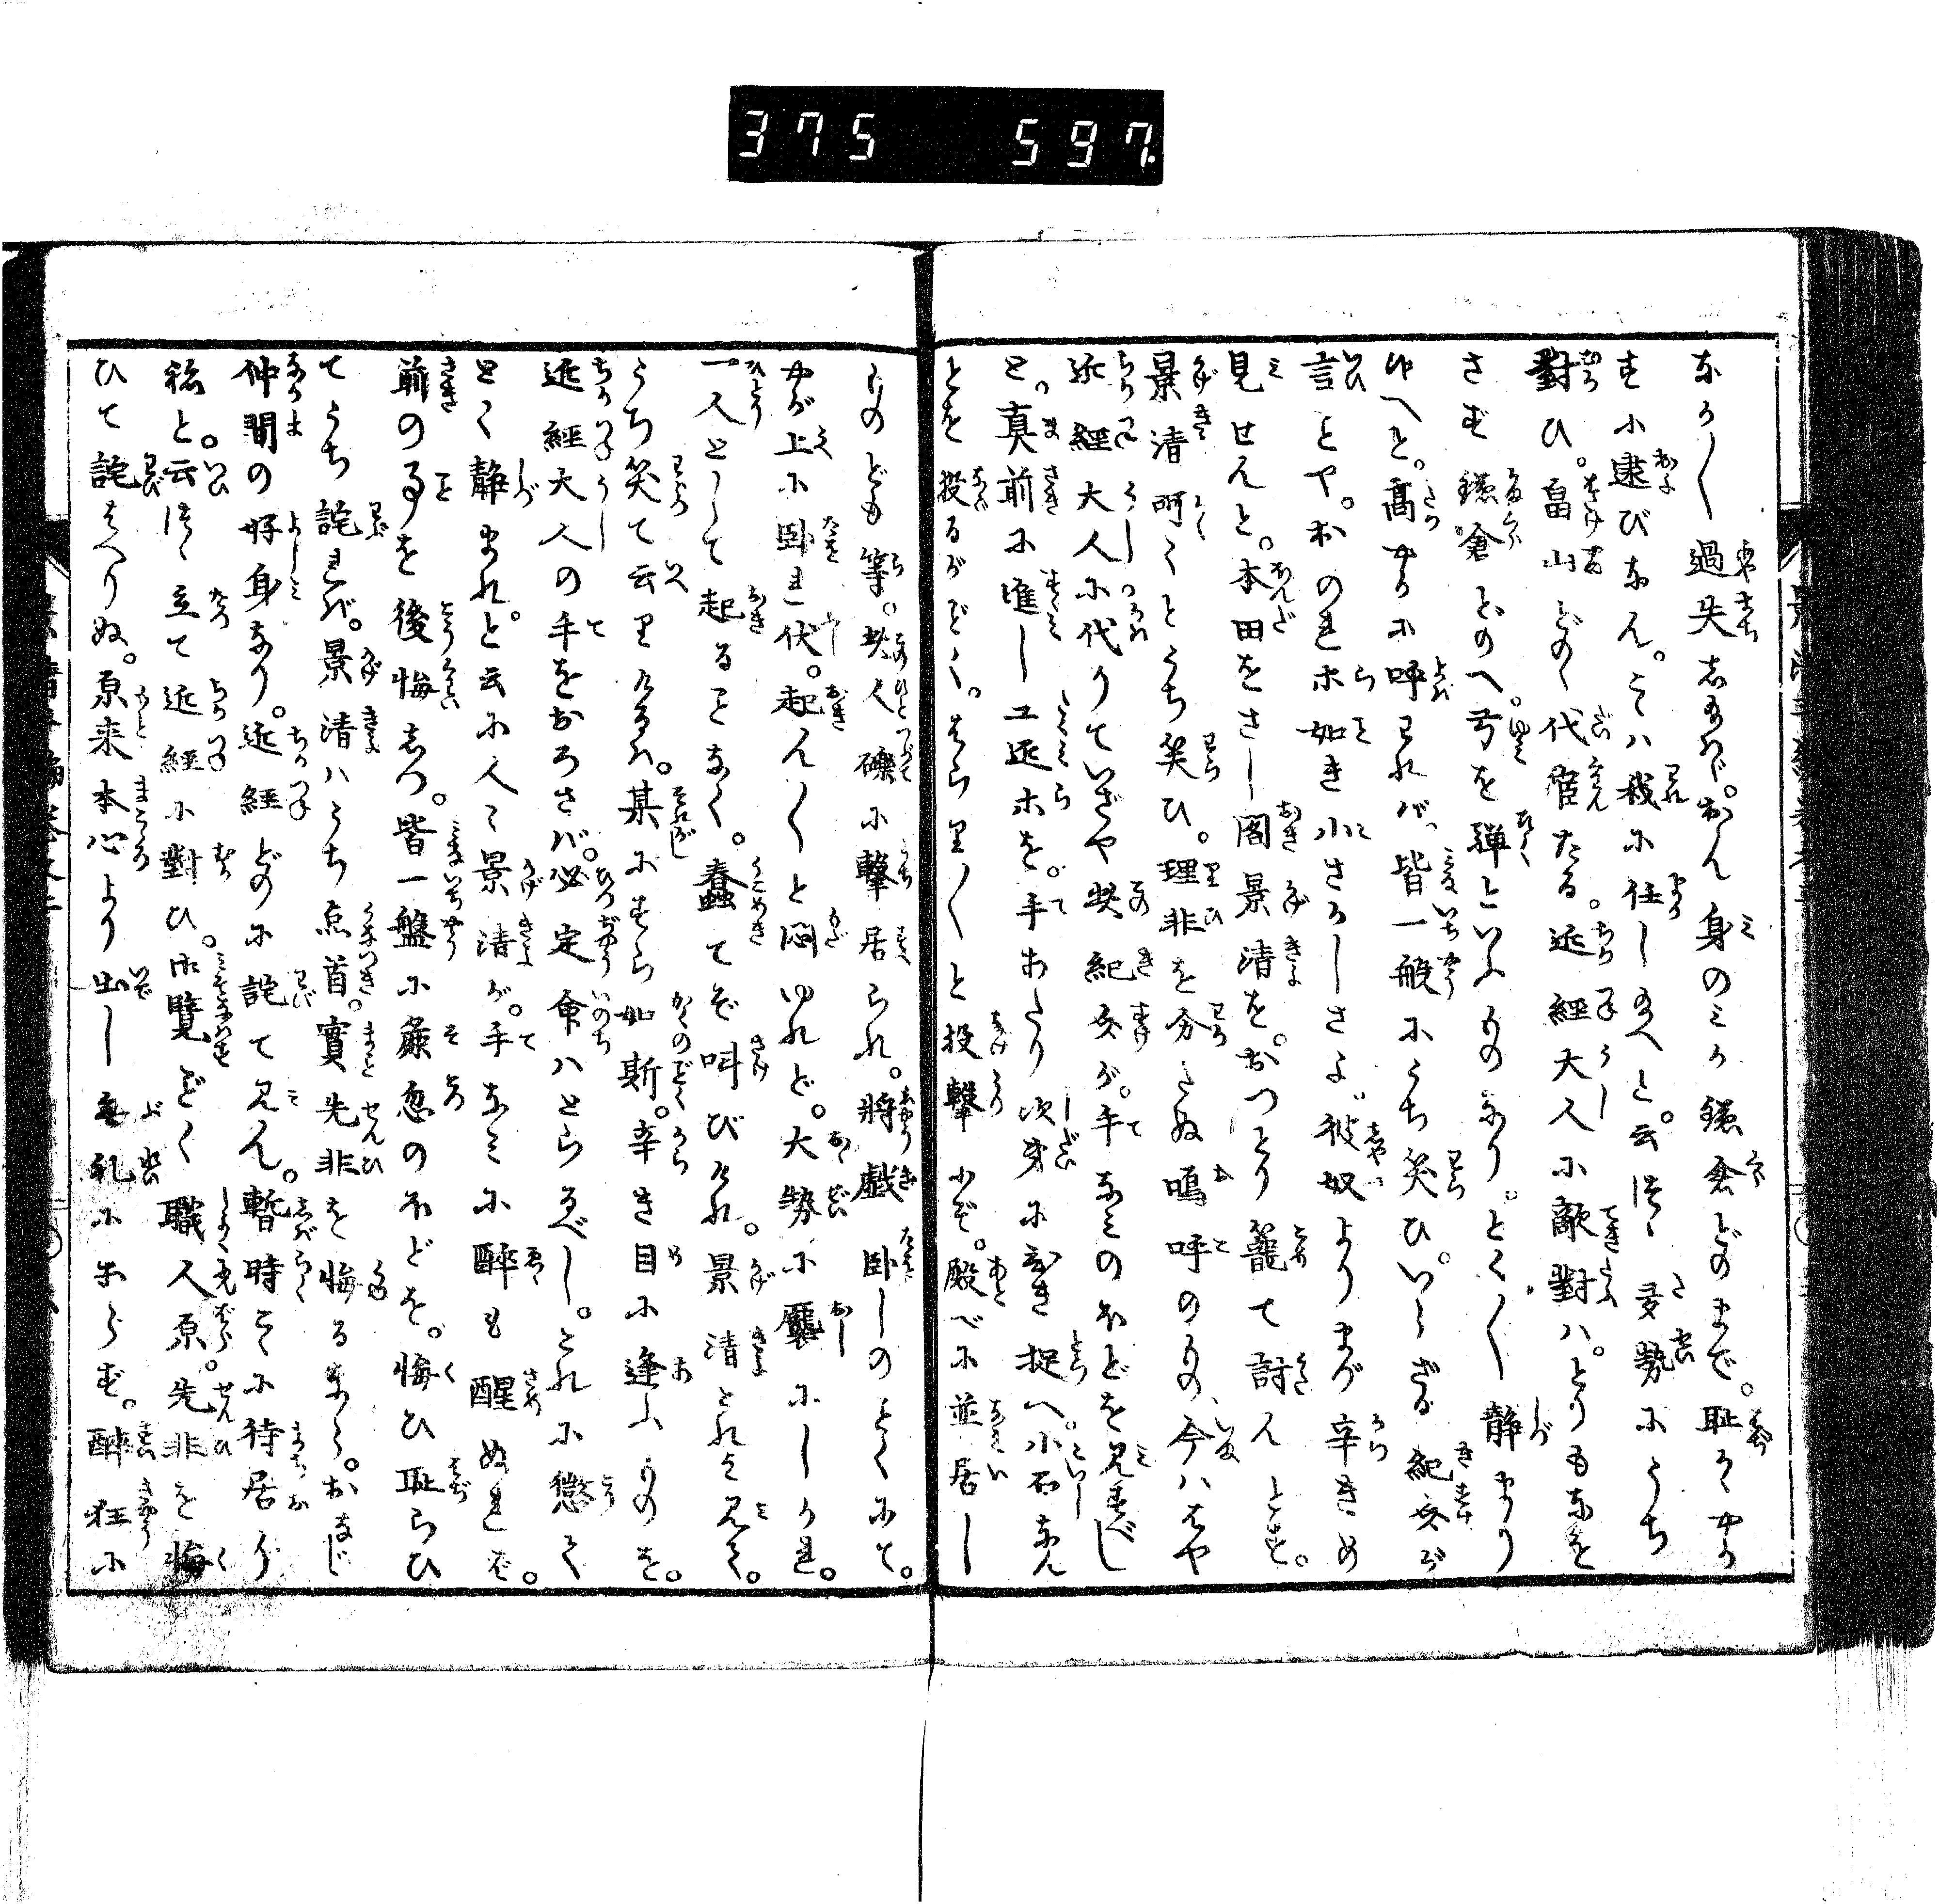 375 597
なか〳〵過失しあれバ。おん身のミか鎌倉どのまで。耻かゝやか
すに逮びなん。こハ我に任し給へと。云つゝ多勢にうち
對ひ。畠山どのゝ代官たる。近經大人に敵對ハ。とりもなほ
さず鎌倉どのへ。弓を彈といふものなり。とく〳〵静まり
給へと。高やかに呼はれバ。皆一般にうち笑ひ。いらざる紀女が
言ごとや。おのれ等如き小さかしさよ。彼奴よりまづ辛きめ
見せんと。本田をさし閣景清を。おつとり籠て討んとす。
景清呵〻とうち笑ひ。理非を分たぬ嗚呼のもの。今ハはや
近經大人に代りていざや此紀女が。手なミのほどを見すべし
と。真前に進し工匠等を。手あたり次第にひき捉へ。小石なん
どを投るがごとく。はらり〳〵と投撃にぞ。殿べに並居し
ものども等。此人礫に撃居られ。將戯卧しのごとくにて。
やが上に卧れ伏。起ん〳〵と悶ゆれど。大勢に壓にしかれ。
一人として起ることなく。蠢てぞ叫びける。景清これを見て。
うち笑て云りけるハ。某にすら如斯。辛き目に逢ふものを。
近經大人の手をおろさバ。必定命ハとらるべし。これに懲て
とく静まれ。と云に人〻景清が。手なミに醉も醒ぬれば。
前の事を後悔しつ。皆一盤に麁忽のほどを。悔ひ耻らひ
てうち詫れバ。景清ハうち点首。實先非を悔るなら。おなじ
仲間の好身なり。近經どのに詫て見ん。暫時こゝに待居り
ねと。云つゝ立て近經に對ひ。御覧ごとく職人原。先非を悔
ひて詫はべりぬ。原来本心より出し無礼にあらず。醉狂に